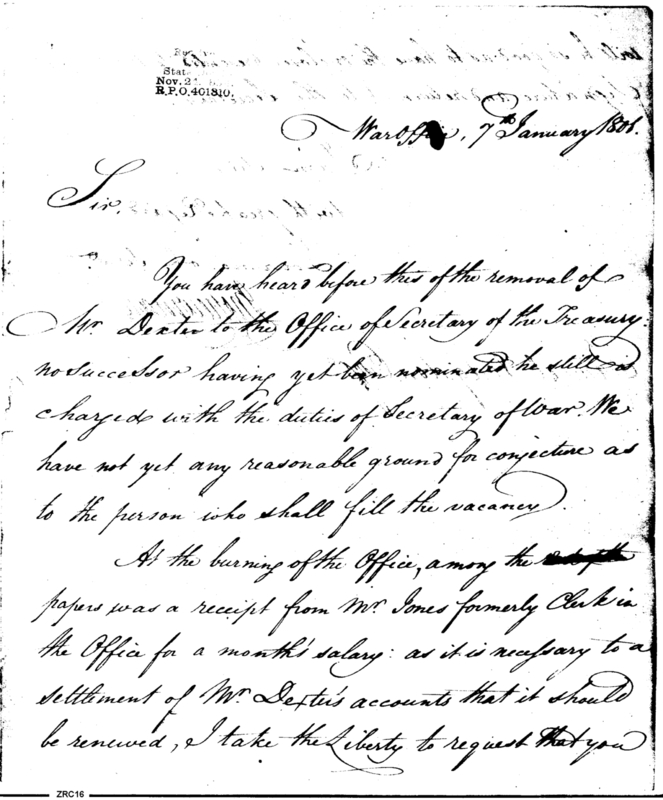 State
Nov. 2
R.P.O. 401810.
War Office, 7th January 1801.
Sir,
You have heard before this of the removal of
Mr Dexter to the Office of Secretary of the Treasury:
no successor having yet been nominated he still is
charged with the duties of Secretary of War. We
have not yet any reasonable ground for conjecture as
to the person who shall fill the vacancy.
At the burning of the Office, among the
papers was a receipt from Mr Jones formerly Clerk in
the Office for a month's salary: as it is necessary to a
settlement of Mr Dexter's accounts that it should
be renewed, I take the Liberty to request that you
ZRC16